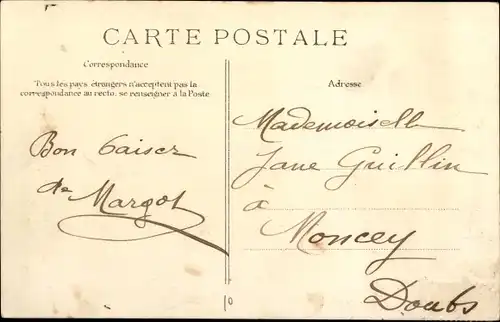 CARTE POSTALE
Correspondance
Tous les pays étrangers n'acceptent pas la
correspondance au recto, se renseigner à la Poste
Bon baiser
de Margot
Adresse
Mademoiselle
Jane Guillin
à
Moncey
Doubs